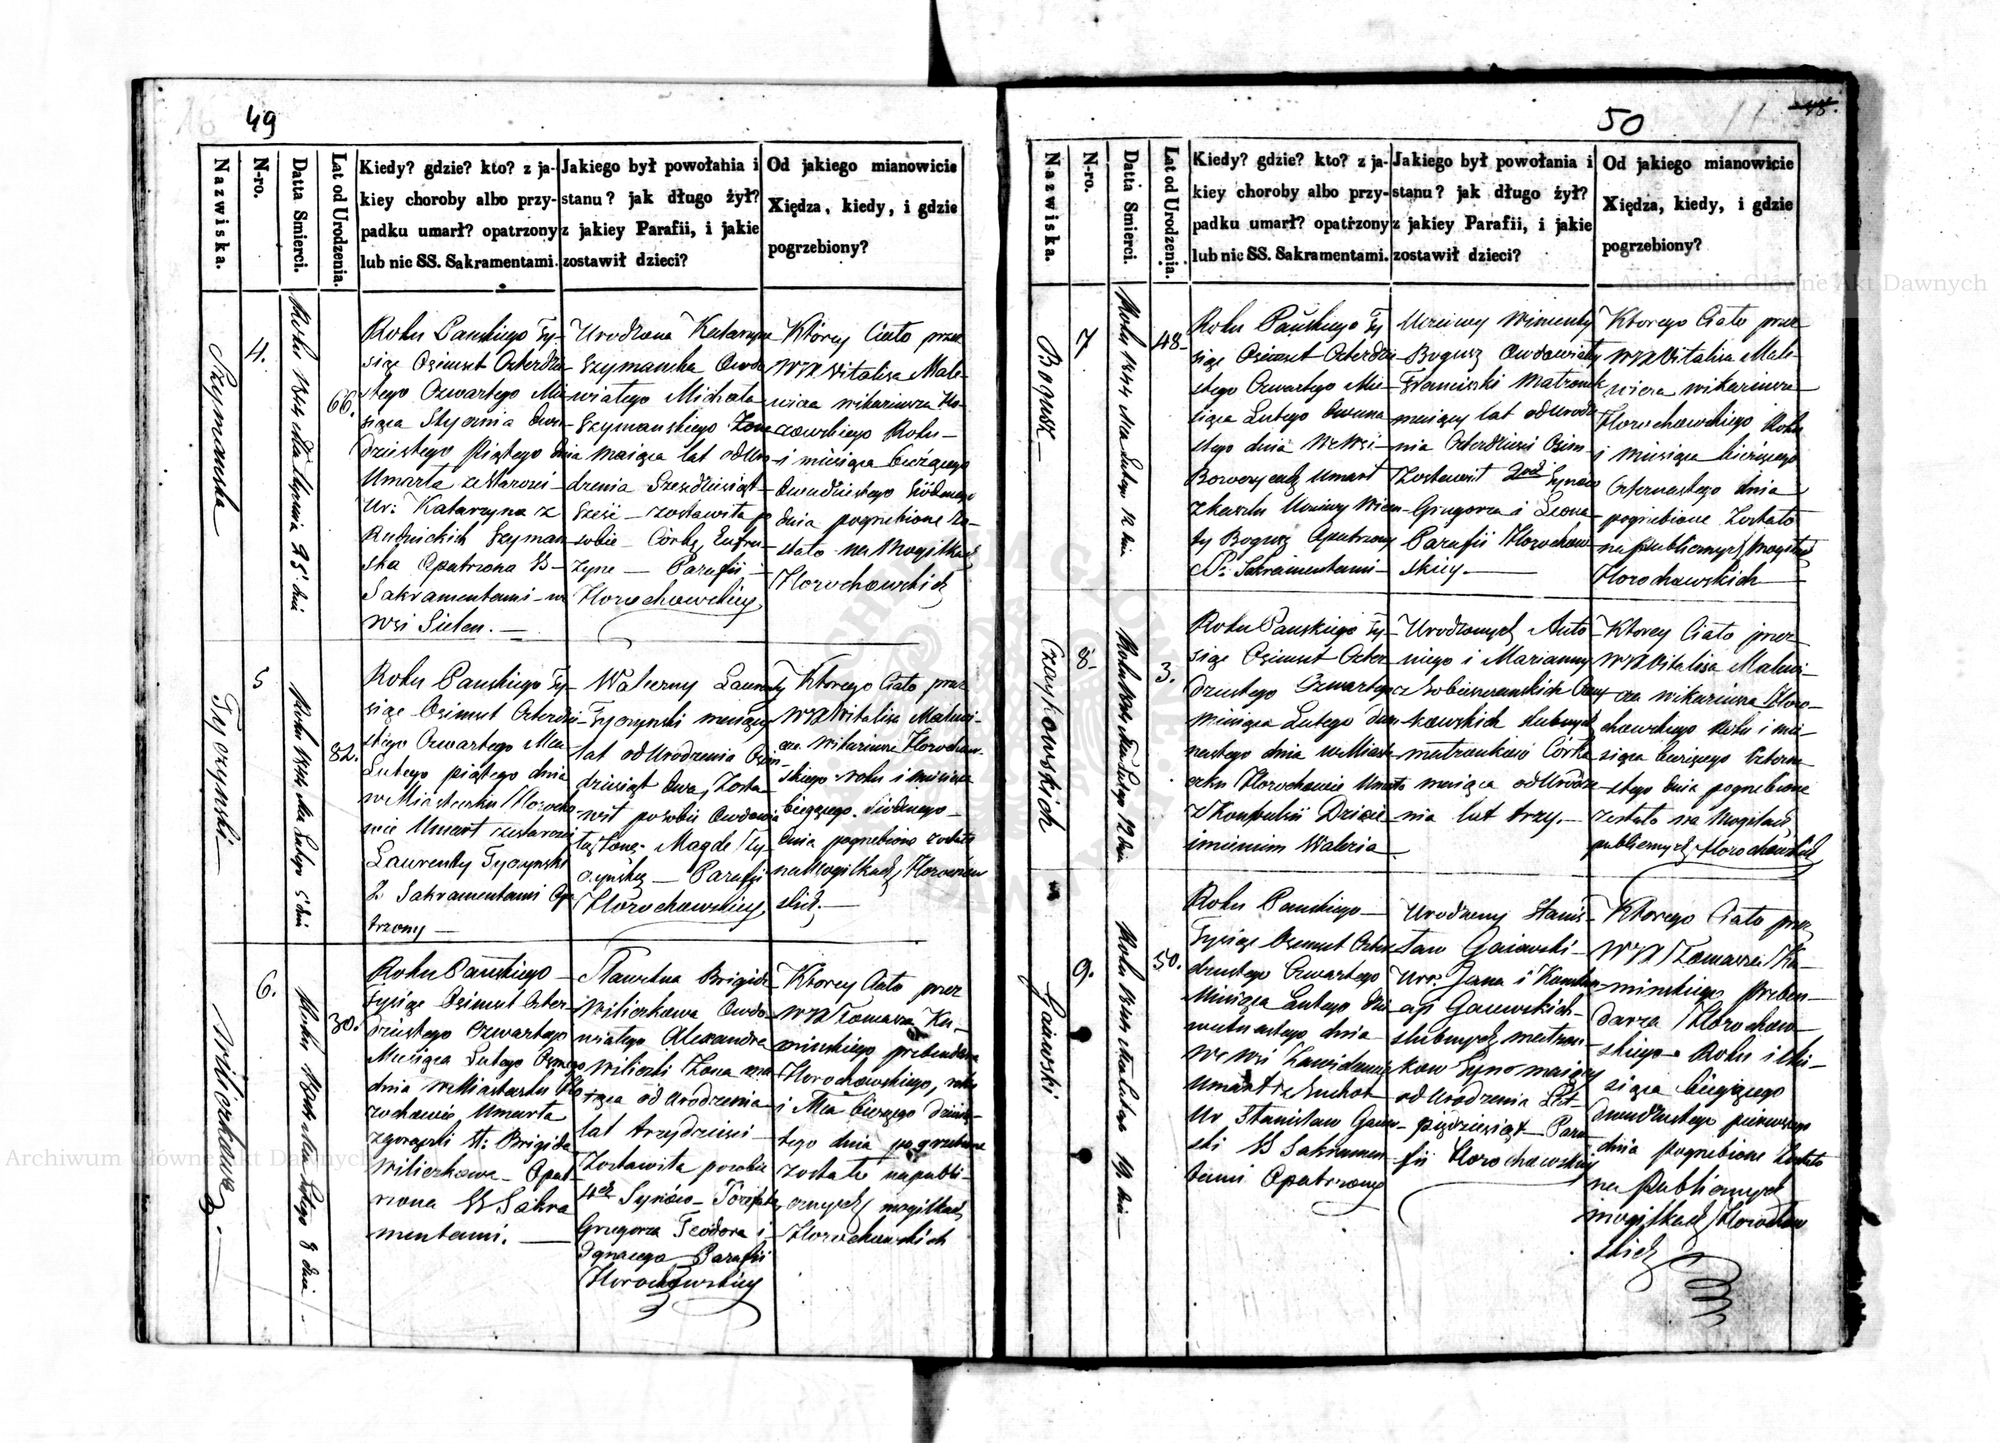 49
Nazwiska.
N-ro.
Datta Smierci.
Lat od Urodzenia.
Kiedy? gdzie? kto? z ja-
kiey choroby albo przy-
padku umarł? opatrzony
lub nie SS. Sakramentami.
Jakiego był powołania i
stanu? jak długo żył?
z jakiey Parafii, i jakie
zostawił dzieci?
Od jakiego mianowicie
Xiędza, kiedy, i gdzie
pogrzebiony?
Szymańska
4.
66.
Roku Pańskiego Ty-
siąc Osimset Czterdzie-
stego Czwartego Mie-
siąca Stycznia Dwu-
dziestego Piątego dnia
Umarła ze starości
Ur: Katarzyna z
Rudnickich Szymań-
ska Opatrzona SS
Sakramentami we
wsi Sielen.
Urodzona Katarzyna
Szymańska Owdo-
wiałego Michała
Szymańskiego Żona
maiąca lat od Uro-
dzenia Sześdziesiąt
sześć zostawiła po
sobie Córkę Eufro-
zynę Parafii
Horochowskiey
Ktorey Ciało przez
WX Witalisa Male-
wicza wikariusza Ho-
rochowskiego Roku
i miesiąca bieżącego
dwudziestego siódmego
dnia pogrzebione zo-
stało na Mogiłkach
Horochowskich
Tyczyński
5
82.
Roku Pańskiego Ty-
siąc Osimset Czterdzie-
stego Czwartego Mca
Lutego piątego dnia
w Miasteczku Horocho-
wie Umarł ze starości
Laurenty Tyczyński
Ś. Sakramentami Opa-
trzony
Walerny Laurenty
Tyczyński maiący
lat od Urodzenia Ośm-
dziesiąt dwa, Zosta-
wił po sobie Owdowia-
łą Żonę Magdę Ty-
czyńską Parafii
Horochowskiey
Ktorego Ciało przez
WX Witalisa Malewi-
cza Wikariusza Horochow-
skiego roku i miesiąca
bieżącego Siódmego
dnia pogrzebiono zostało
na Mogiłkach Horochow-
skich.
Wiliczkowa
6.
30.
Roku Pańskiego
Tysiąc Osimset Czter-
dziestego Czwartego
Miesiąca Lutego Osmego
dnia w Miasteczku Ho-
rochowie Umarła
z gorączki Sł: Brigida
Wiliczkowa Opat-
rzona SS Sakra
mentami.
Sławetna Brigida
Wiliczkowa Owdo-
wiałego Alexandra
Wiliczki Żona ma
iąca od Urodzenia
lat trzydzieści
Zostawiła po sobie
4ech Synów Józefa
Grzegorza Teodora i
Ignacego Parafii
Horochowskiey
Ktorey Ciało przez
WX Tomasza Ku-
mińskiego prebendarza
Horochowskiego, roku
i Mca bieżącego dziewią-
tego dnia pogrzebione
zostało na publi-
cznych mogiłkach
Horochowskich
50
Nazwiska.
N-ro.
Datta Smierci.
Lat od Urodzenia.
Kiedy? gdzie? kto? z ja-
kiey choroby albo przy-
padku umarł? opatrzony
lub nie SS. Sakramentami.
Jakiego był powołania i
stanu? jak długo żył?
z jakiey Parafii, i jakie
zostawił dzieci?
Od jakiego mianowicie
Xiędza, kiedy, i gdzie
pogrzebiony?
Bogusz
7
48
Roku Pańskiego Ty
siąc Osimset Czterdzie
stego Czwartego Mie-
siąca Lutego dwuna
stego dnia we wsi
Umarł
z kaszlu Uczciwy Wincen-
ty Bogusz Opatrzony
Ś. Sakramentami
Uczciwy Wincenty
Bogusz Owdowiałey
Franciszki Małżonek
maiący lat od Urodze-
nia Czterdzieści Ośm
Zostawił 2ch Synów
Grzegorza i Leona
Parafii Horochow-
skiey.
Ktorego Ciało przez
WX Witalisa Male-
wicza wikariusza
Horochowskiego Roku
i miesiąca bieżącego
Czternastego dnia
pogrzebione Zostało
na publicznych mogiłkach
Horochowskich
Czaykowskich
8
3.
Roku Pańskiego Ty-
siąc Osimset Czter
dziestego Czwartego
miesiąca Lutego dwu
nastego dnia w Miaste-
czku Horochowie Umarło
z Konwulsii Dziecie
imieniem Waleria
Urodzonych Anto
niego i Marianny
z Sobieszczańskich Czay-
kowskich slubnych
małżonków Córka
maiąca od Urodze
nia lat trzy.
Ktorey Ciało przez
WX Witalisa Malewi-
cza wikariusza Horo-
chowskiego Roku i mie-
siąca bieżącego Czterna-
stego dnia pogrzebione
zostało na Mogiłkach
publicznych Horochowskich
Gaiewski
9.
50.
Roku Pańskiego
Tysiąc Osimset Czter
dziestego Czwartego
Miesiąca Lutego Dzie
więtnastego dnia
we wsi
Umarł z Suchot
Ur Stanisław Gaiew-
ski SS Sakramen-
tami Opatrzony
Urodzony Stanis-
ław Gaiewski
Urr. Jana i Konstan-
cyi Gaiewskich
slubnych małżon-
ków Syn maiący
od Urodzenia Lat
pięćdziesiąt Para-
fii Horochowskiey
Ktorego Ciało przez
WX Tomasza Ku-
mińskiego preben-
darza Horochow-
skiego Roku i Mie-
siąca bieżącego
dwudziestego pierwszego
dnia pogrzebione Zostało
na Publicznych
mogiłkach Horochow
skich
Archiwum Główne Akt Dawnych
Archiwum Główne Akt Dawnych